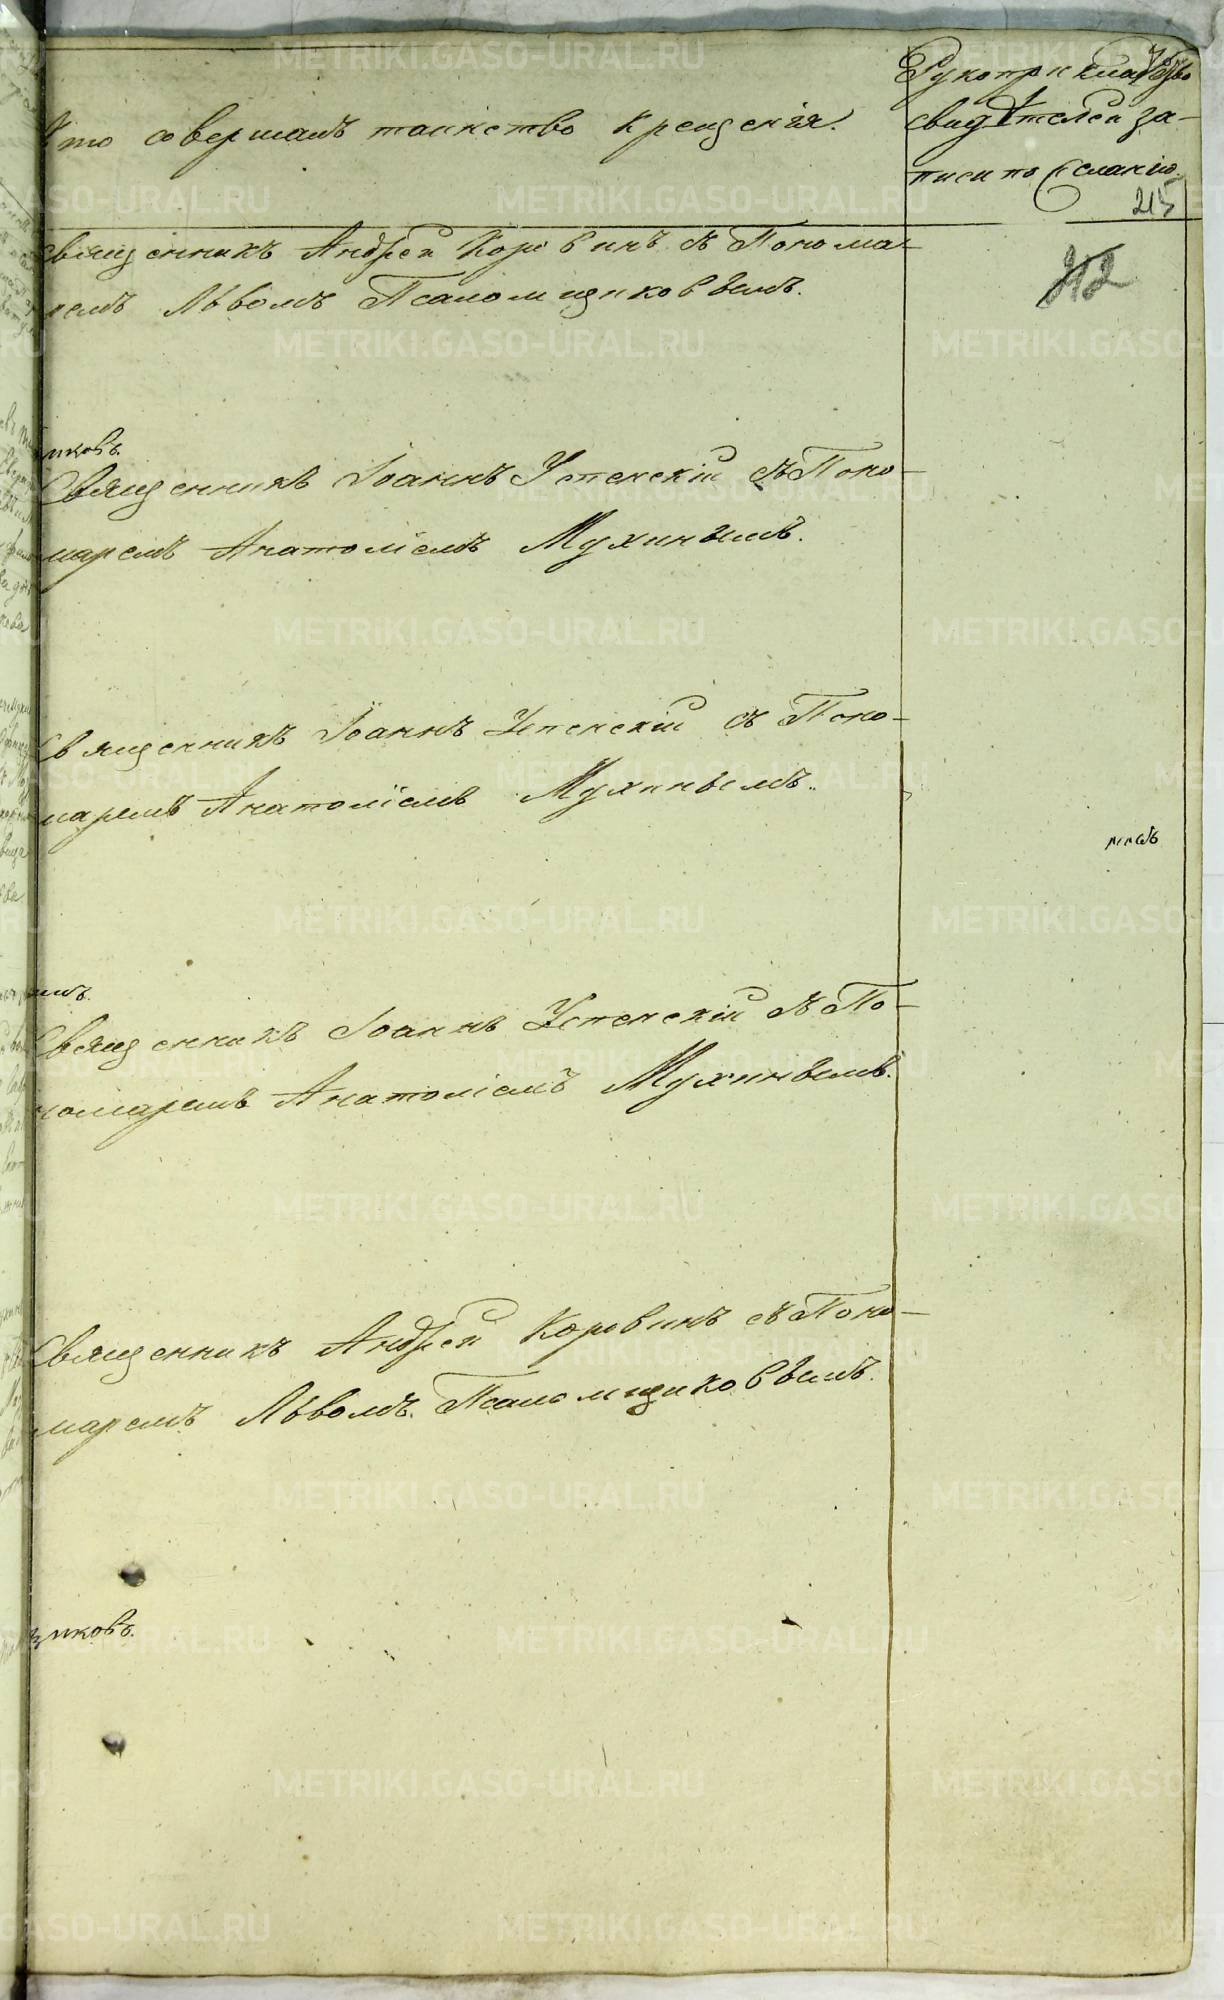 Кто совершалъ таинство крещенія.
Рукоприкладство
свидѣтелей за-
писи по желанію.
215
212
Священникъ Андрей Коровинъ съ Понома-
ремъ Львомъ Псаломщиковымъ.
иковъ.
Священникъ Іоаннъ Успенскій съ Поно-
маремъ Анатоліемъ Мухинымъ.
Священникъ Іоаннъ Успенскій съ Поно-
маремъ Анатоліемъ Мухинымъ.
Священникъ Іоаннъ Успенскій съ По-
номаремъ Анатоліемъ Мухинымъ.
Священникъ Андрей Коровинъ съ Поно-
маремъ Львомъ Псаломщиковымъ.
щиковъ.
METRIKI.GASO-URAL.RU